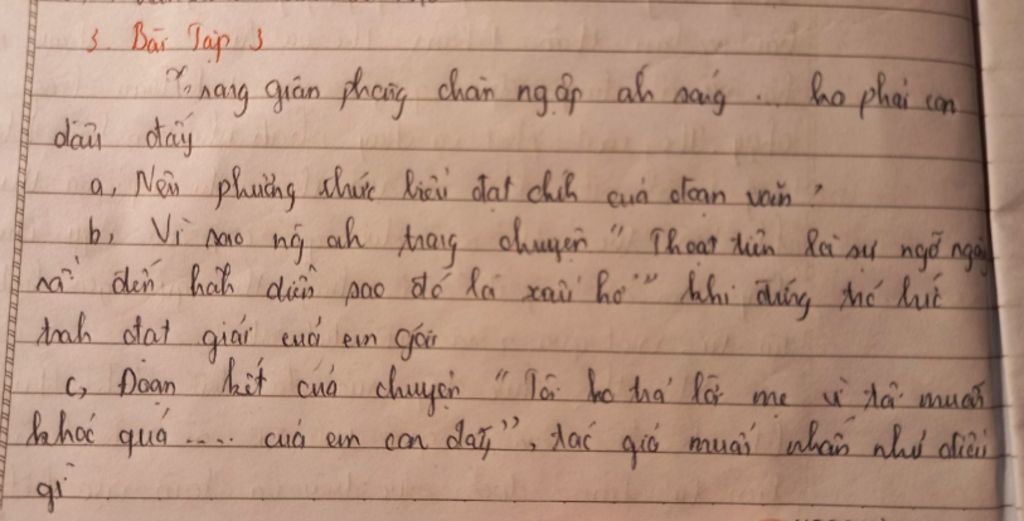 3. Bài Tập 3
Trong gian phòng chan ngập áh sáng ... ko phải con
đâu đấy
a, Nêu phương thức biểu đạt chíh của đoạn văn?
b, Vì sao ng ah trong chuyện "Thoạt tiên là sự ngỡ ngàng
rồi đến hãh diện sao đó là xấu hổ" khi đứng trc bức
trah đạt giải cuả em gái
c, Đoạn kết của chuyện "Tôi ko trả lời mẹ vì tôi muốn
khóc quá .... của em con đấy", tác giả muốn nhắn nhủ điều
gì